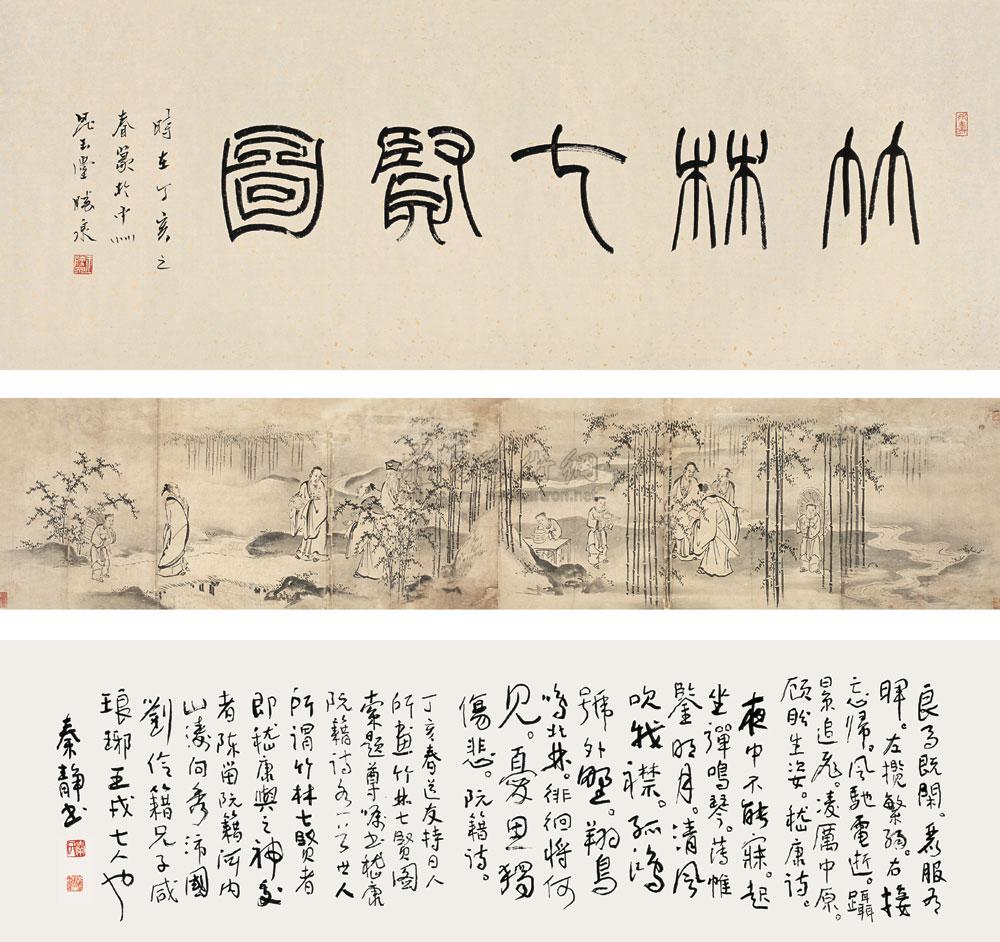 竹林七賢圖
時在丁亥之
春篆於中州
良馬既閑。麗服有
暉。左攬繁弱。右接
忘歸。風馳電逝。躡
景追飛。凌厲中原。
顧盼生姿。嵇康诗。
夜中不能寐。起
坐彈鳴琴。薄帷
鑒明月。清風
吹我襟。孤鴻
號外野。翔鳥
鳴北林。徘徊將何
見。憂思獨
傷悲。阮籍诗。
丁亥春送友持日人
所畫竹林七賢圖
索題尊囑书嵇康
阮籍诗各一首世人
所謂竹林七贤者
即嵇康與之神交
者陳留阮籍河内
山涛向秀沛國
劉伶籍兄子咸
琅琊王戎七人也
秦靜书